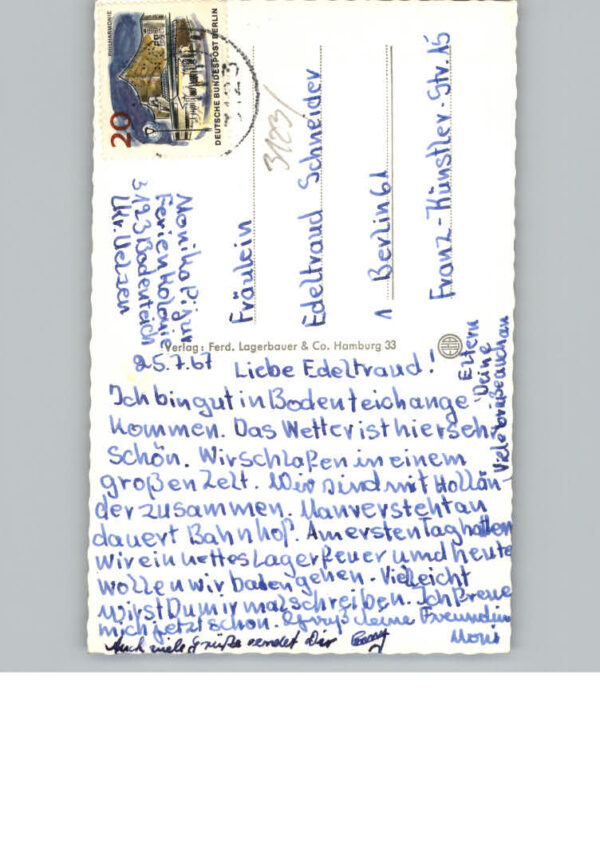 PHILHARMONIE
DEUTSCHE BUNDESPOST BERLIN
20
3123/
Fräulein
Edeltraud Schneider
1 Berlin 61
Franz-Künstler-Str. 15
Monika
Ferien Kolonie
3123 Bodenteich
Kr. Uelzen
Verlag: Ferd. Lagerbauer & Co. Hamburg 33
25.7.67 Liebe Edeltraud!
Ich bin gut in Bodenteich ange-
kommen. Das Wetter ist hier sehr
schön. Wir schlafen in einem
großen Zelt. Wir sind mit Hollän-
der zusammen. Man versteht an
dauert Bahnhof. Am ersten Tag hatten
wir ein nettes Lagerfeuer und heute
wollen wir baden gehen. Vielleicht
wirst Du mir mal schreiben. Ich freue
mich jetzt schon. Es grüßt deine Freundin
Moni
Auch viele Grüße sendet Dir
Viele Grüße auch an
Deine
Eltern